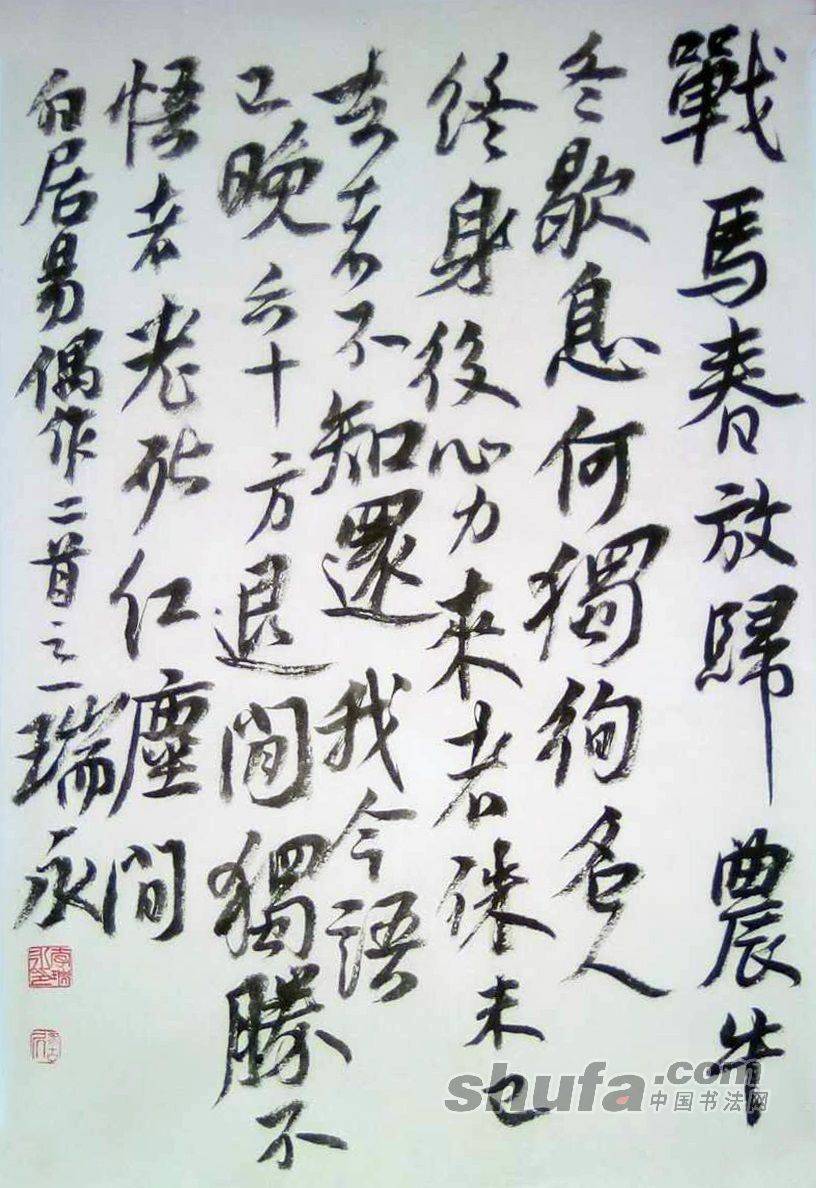 戰馬春放歸農牛
冬歇息何獨徇名人
終身役心力來者殊未已
去者不知還我今語
已晚六十方退間獨勝不
悟者老死红塵間
白居易偶作二首之一瑞永
shufa.com
中国书法网